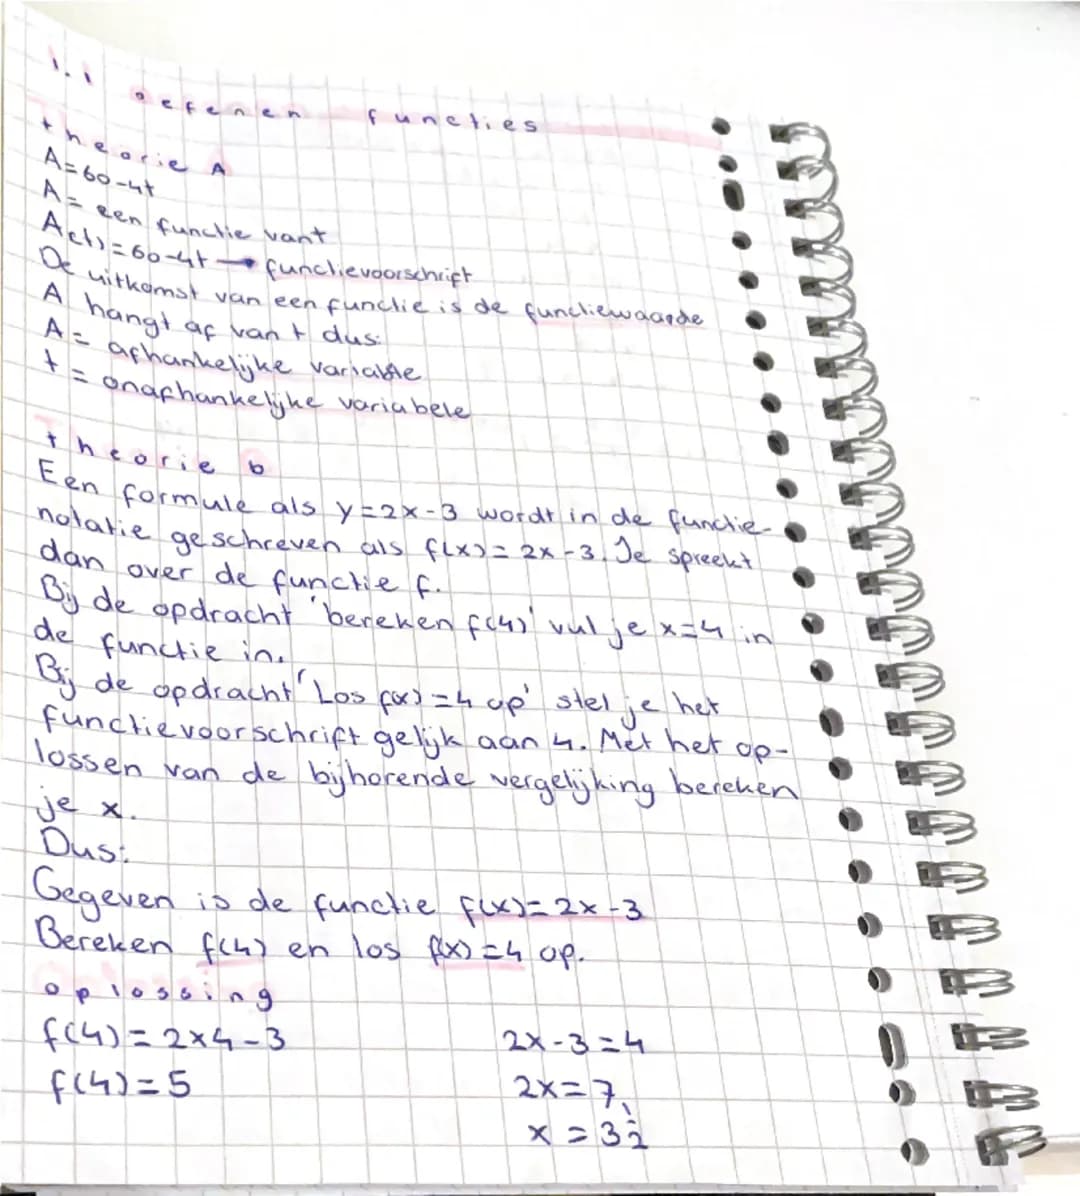 1.1 oefenen functies
theorie A
A=60-4t
A= een functie van t
A(t)=60-4t → functievoorschrift
De uitkomst van een functie is de functiewaarde
A hangt af van t dus:
A= afhankelijke variable
t= onafhankelijke variabele
theorie b
Een formule als y=2x-3 wordt in de functie-
notatie geschreven als f(x)=2x-3. Je spreekt
dan over de functie f.
Bij de opdracht 'bereken f(4)' vul je x=4 in
de functie in.
Bij de opdracht 'Los f(x)=4 op' stel je het
functievoorschrift gelijk aan 4. Met het op-
lossen van de bijhorende vergelijking bereken
je x.
Dus:
Gegeven is de functie f(x)=2x-3
Bereken f(4) en los f(x)=4 op.
oplossing
f(4)=2x4-3 2x-3=4
f(4)=5 2x=7
x=3½